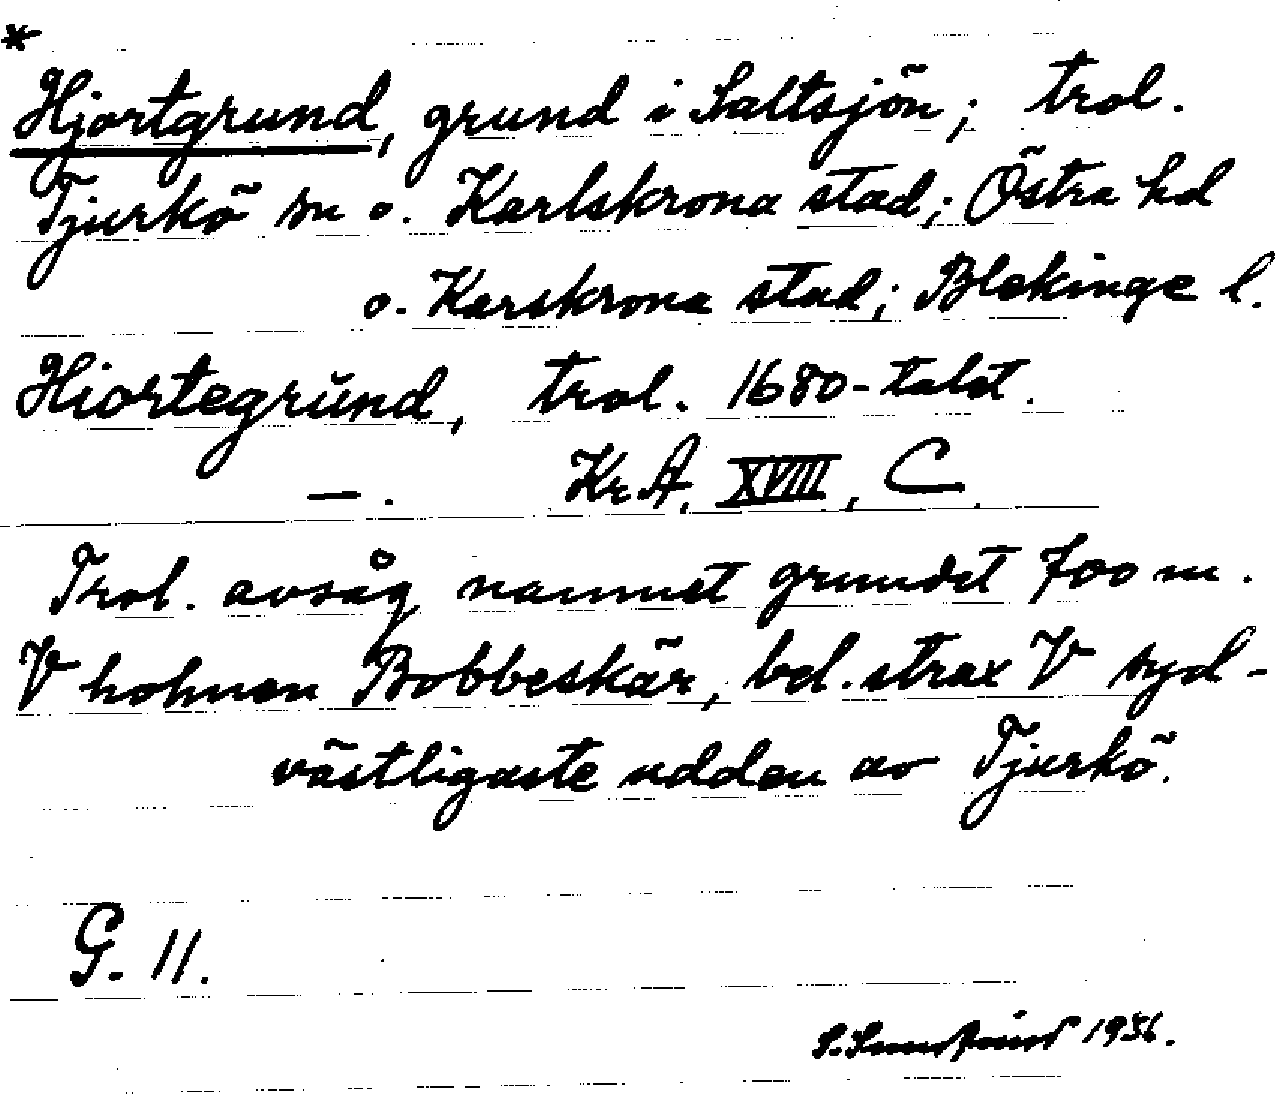 *
Hjortgrund, grund i Saltsjön; trol.
Tjurkö sn o. Karlskrona stad; Östra hd
o. Karskrona stad; Blekinge l.
Hiortegrŭnd, trol. 1680-talet.
—. KrA, XVIII, C.
Trol. avsåg namnet grundet 700 m.
V holmen Bobbeskär, bel. strax V syd-
västligaste udden av Tjurkö.
G. 11.
1956.